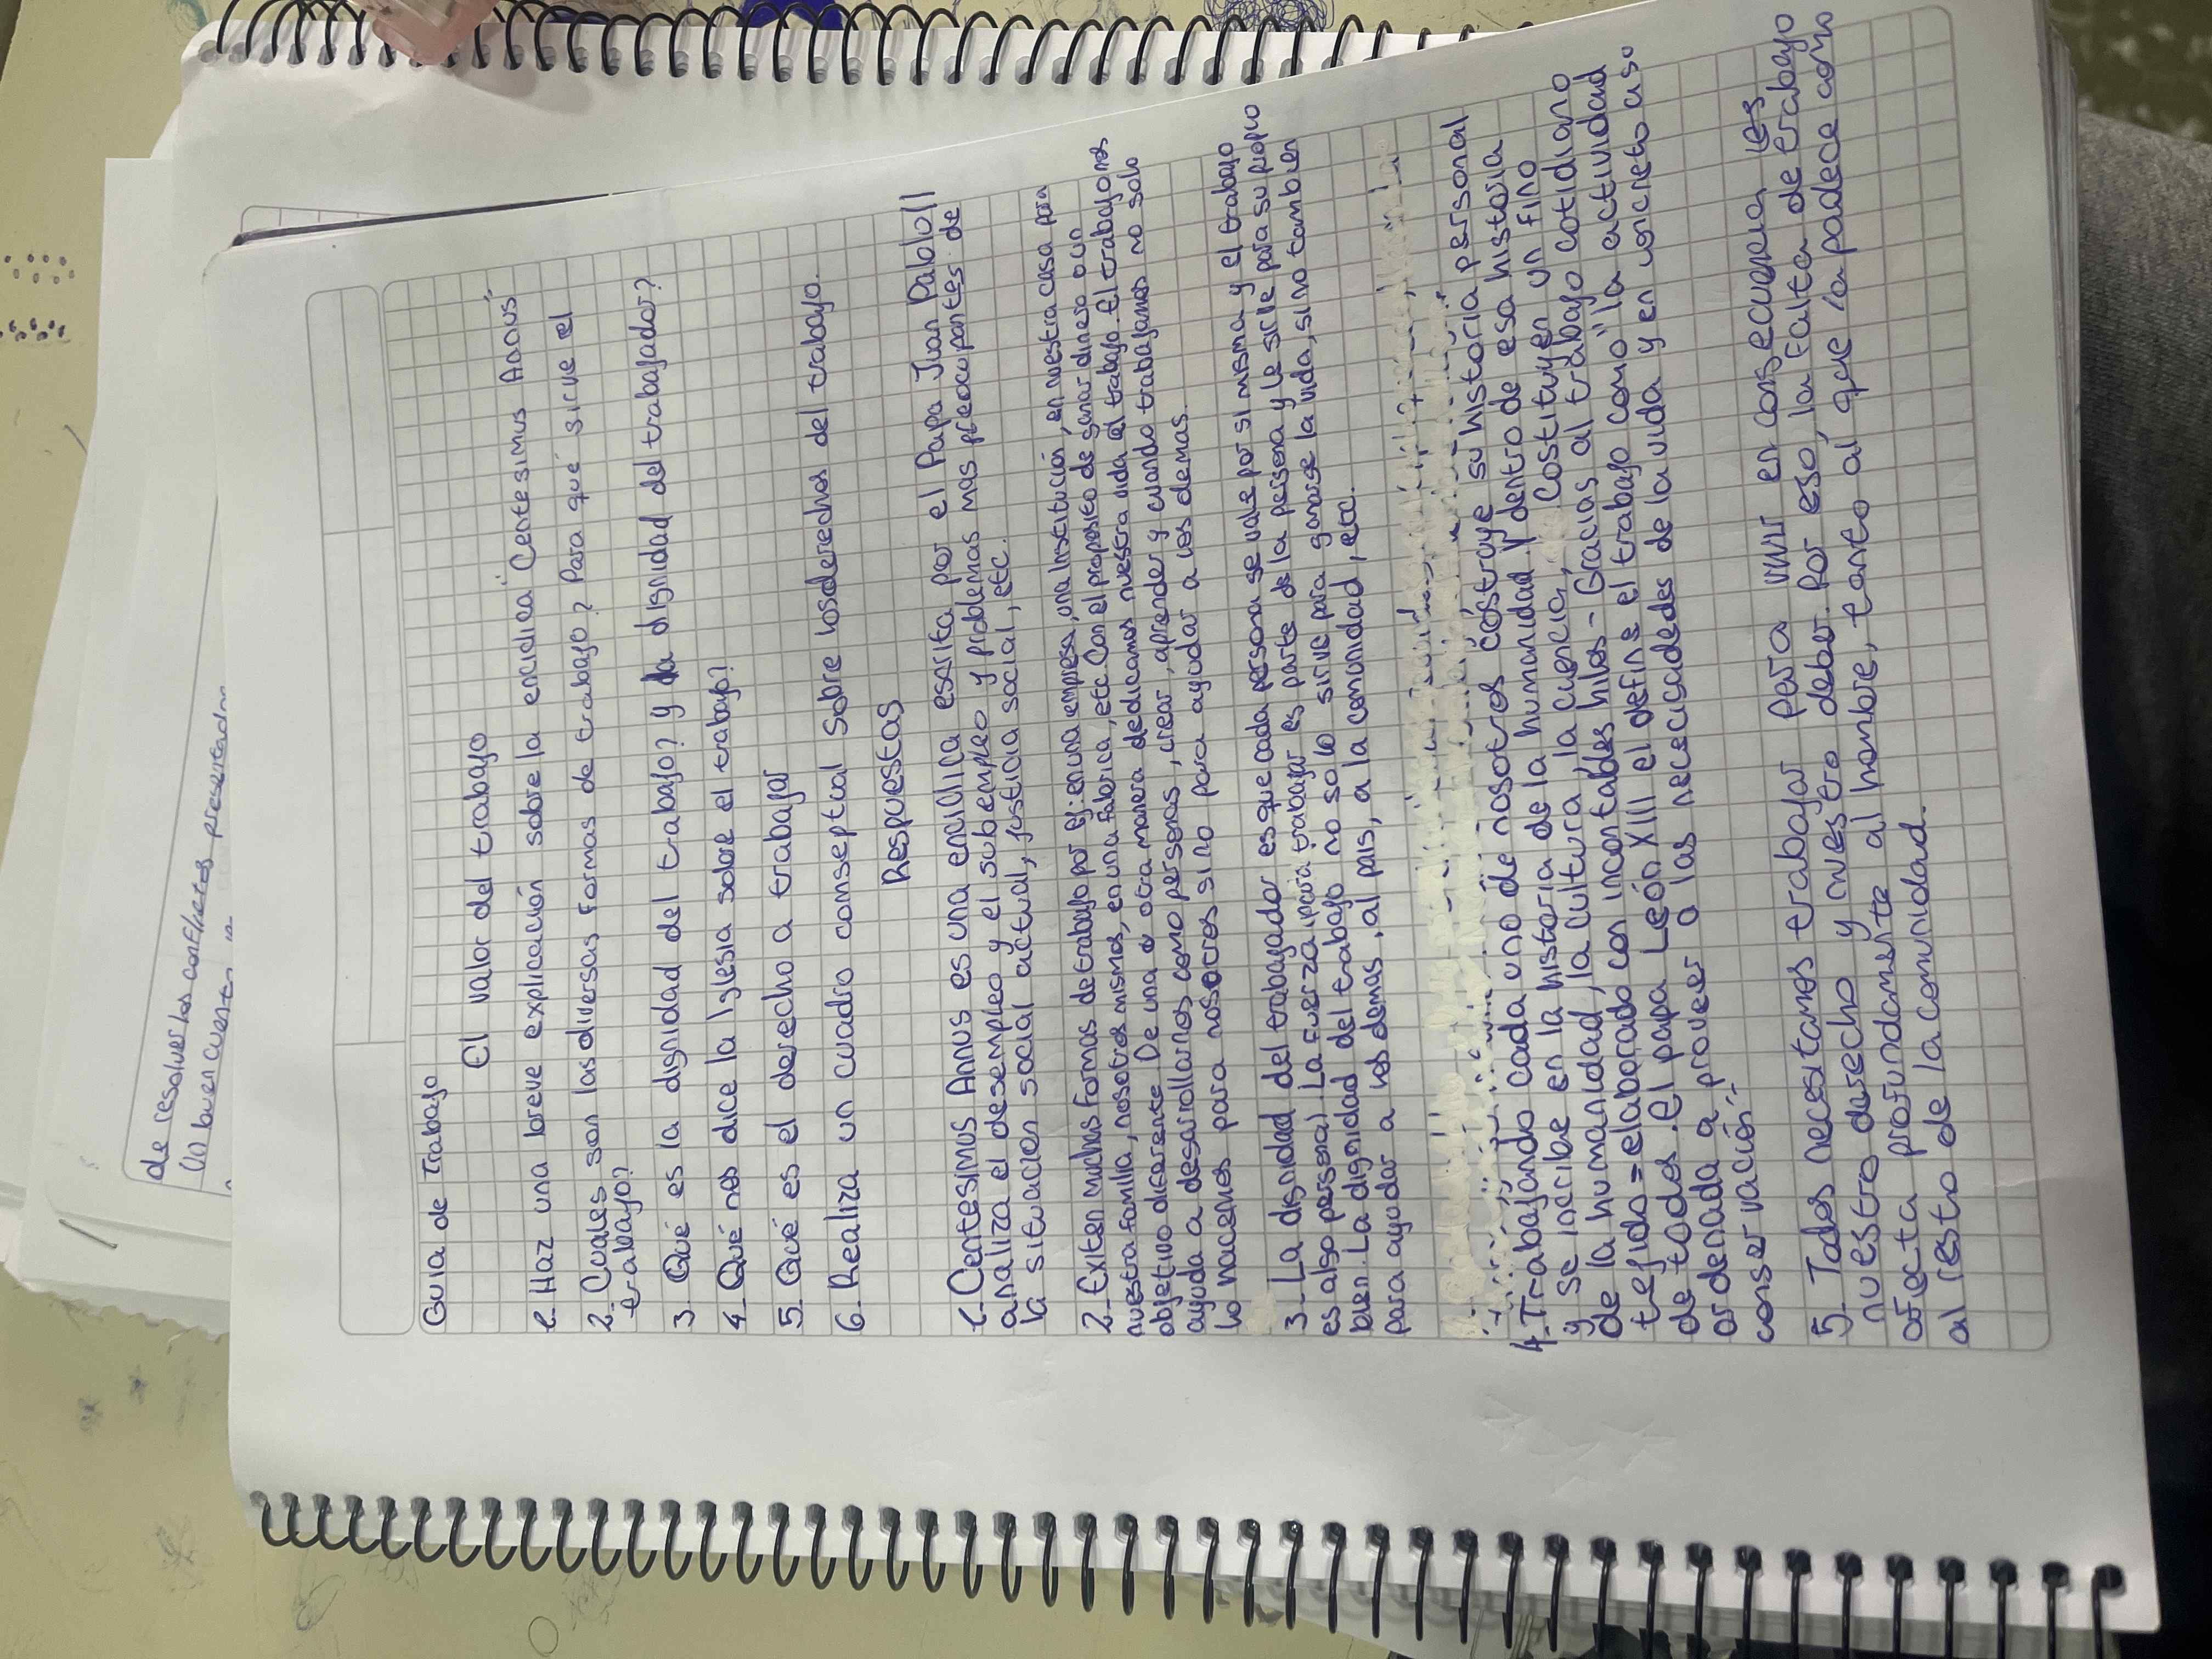 de resolver los conflictos presentados
Un buen cuento
Guia de Trabajo
El valor del trabajo
1. Haz una breve explicación sobre la encidica "Centesimus Annus"
2. Cuales son las diversas formas de trabajo? Para qué sirve el
trabajo?
3. Qué es la dignidad del trabajo? y la dignidad del trabajador?
4. Qué nos dice la Iglesia sobre el trabajo?
5. Qué es el derecho a trabajar
6. Realiza un cuadro conseptual sobre los derechos del trabajo.
Respuestas
1. Centesimus Annus es una enciclica escrita por el Papa Juan Pablo II
analiza el desempleo y el subempleo y problemas mas preocupantes de
la situacion social actual, justicia social, etc.
2. Exiten muchas formas de trabajo por ej: en una empresa, una institución, en nuestra casa para
nuestra familia, nosotros mismos, en una fabrica, etc. Con el proposito de ganar dinero o un
objetivo diferente. De una o otra manera dedicamos nuestra vida al trabajo. El trabajo nos
ayuda a desarrollarnos como personas, crear, aprender y cuando trabajamos no solo
lo hacemos para nosotros si no para ayudar a los demas.
3. La dignidad del trabajador es que cada persona se vale por si misma y el trabajo
es algo personal. La fuerza para trabajar es parte de la persona y le sirve para su propio
bien. La dignidad del trabajo no solo sirve para ganarse la vida, si no tambien
para ayudar a los demas, al pais, a la comunidad, etc.
4. Trabajando cada uno de nosotros costruye su historia personal
y se incribe en la historia de la humanidad. Y dentro de esa historia
de la humanidad, la cultura, la ciencia, Costituyen un fino
tejido = elaborado con incontables hilos - Gracias al trabajo cotidiano
de todos. El papa León XIII el define el trabajo como "la actividad
ordenada a proveer a las necesidades de la vida y en concreto a su
conservación".
5. Todos necesitamos trabajar para vivir en consecuencia es
nuestro derecho y nuestro deber. Por eso, la falta de trabajo
afecta profundamente al hombre, tanto al que la padece como
al resto de la comunidad.